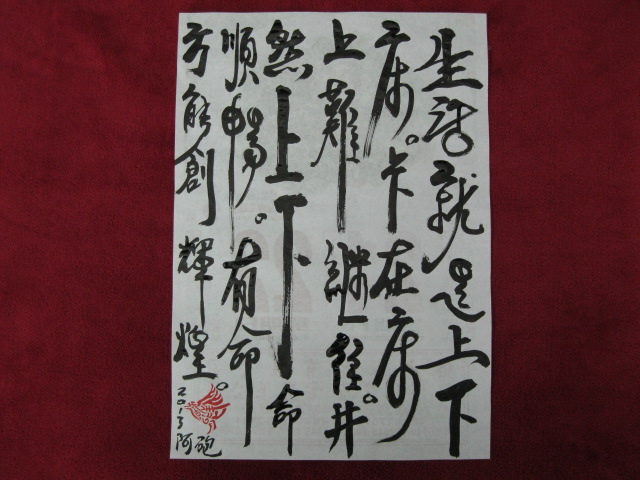 生活就是上下
床。卡在床
上難繼。井
然上下命
順暢。有命
方能創輝煌。
2013
阿砲